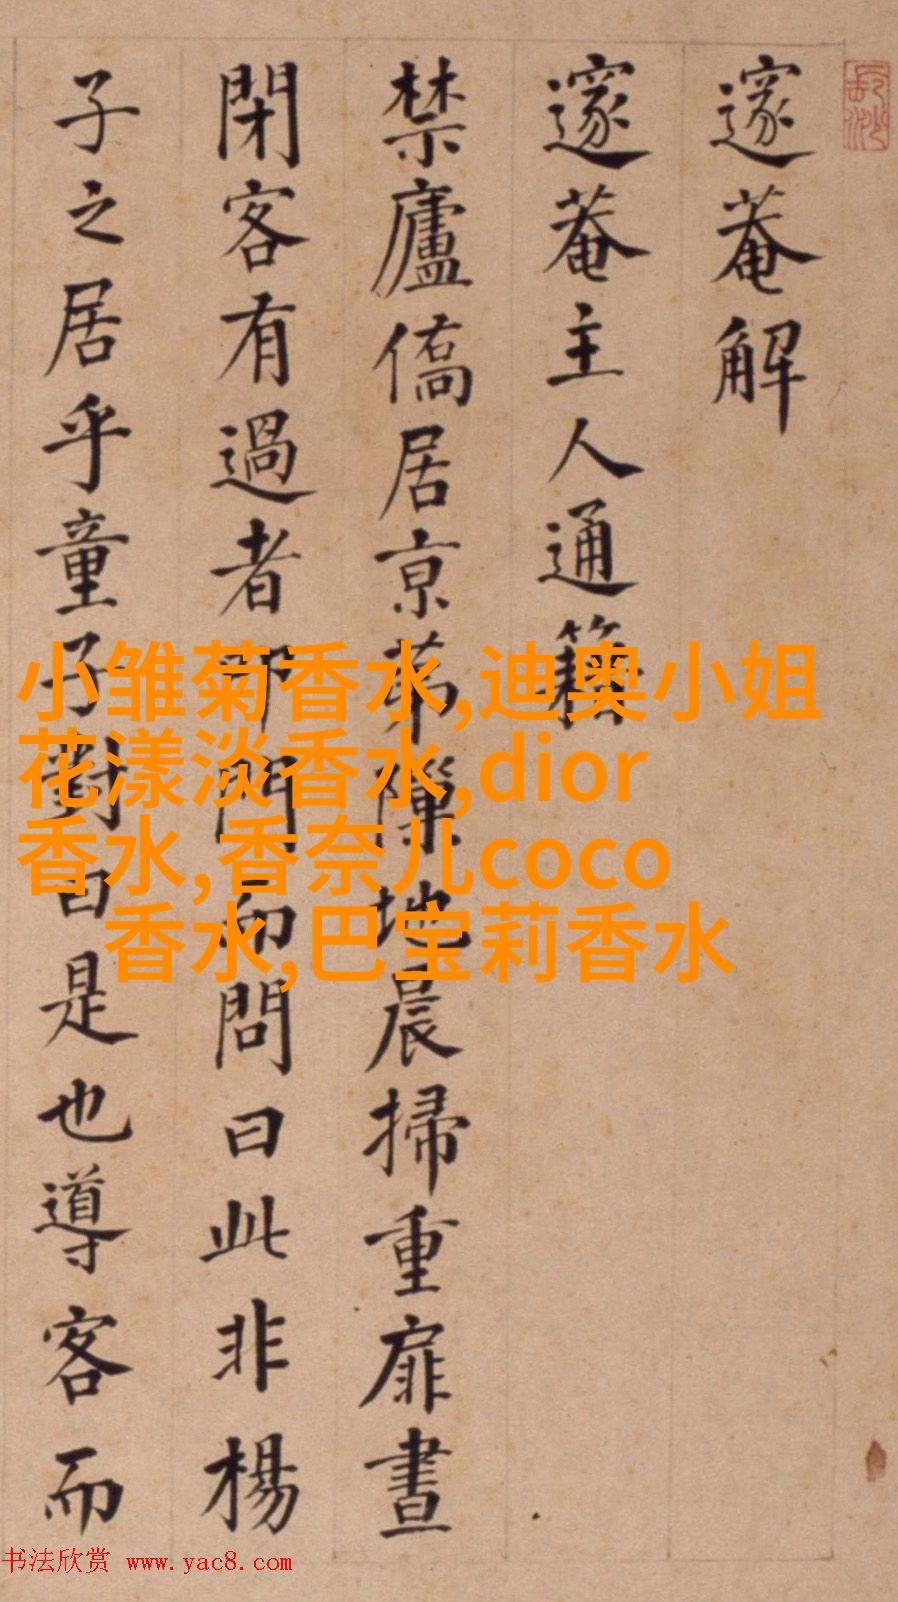 邃菴解
邃菴主人通籍
禁廬僑居京苐隟地晨掃重扉晝
閉客有過者叩門而問曰此非楊
子之居乎童子對曰是也導客而
小雏菊香水,迪奥小姐
花漾淡香水,dior
香水,香奈儿coco
香水,巴宝莉香水
书法欣赏 www.yac8.com